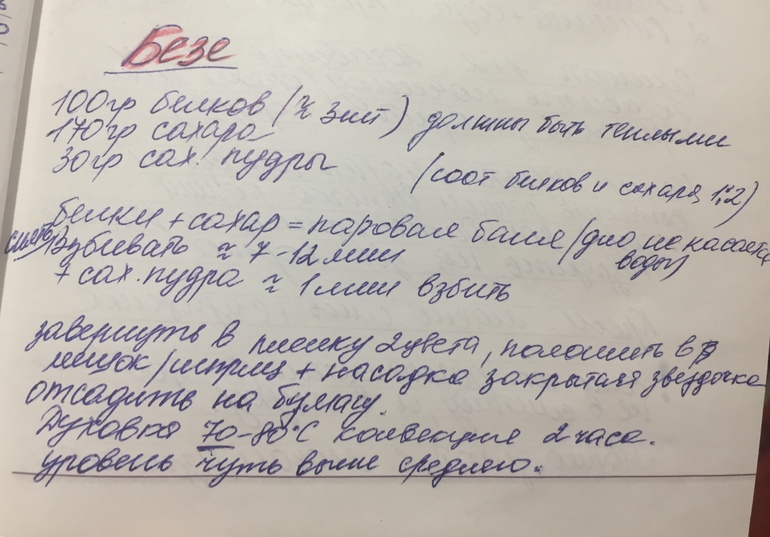 Безе
100гр белков (≈ 3шт) должны быть теплыми
170гр сахара
30гр сах. пудры (соот белков и сахара 1:2)
белки + сахар = паровая баня (дно не касается воды)
снять взбивать ≈ 7-12 мин
+ сах. пудра ≈ 1 мин взбить
завернуть в пленку 2 цвета, положить в
мешок/шприц + насадка закрытая звездочка
отсадить на бумагу.
Духовка 70-80°С конвекция 2 часа.
уровень чуть выше среднего.